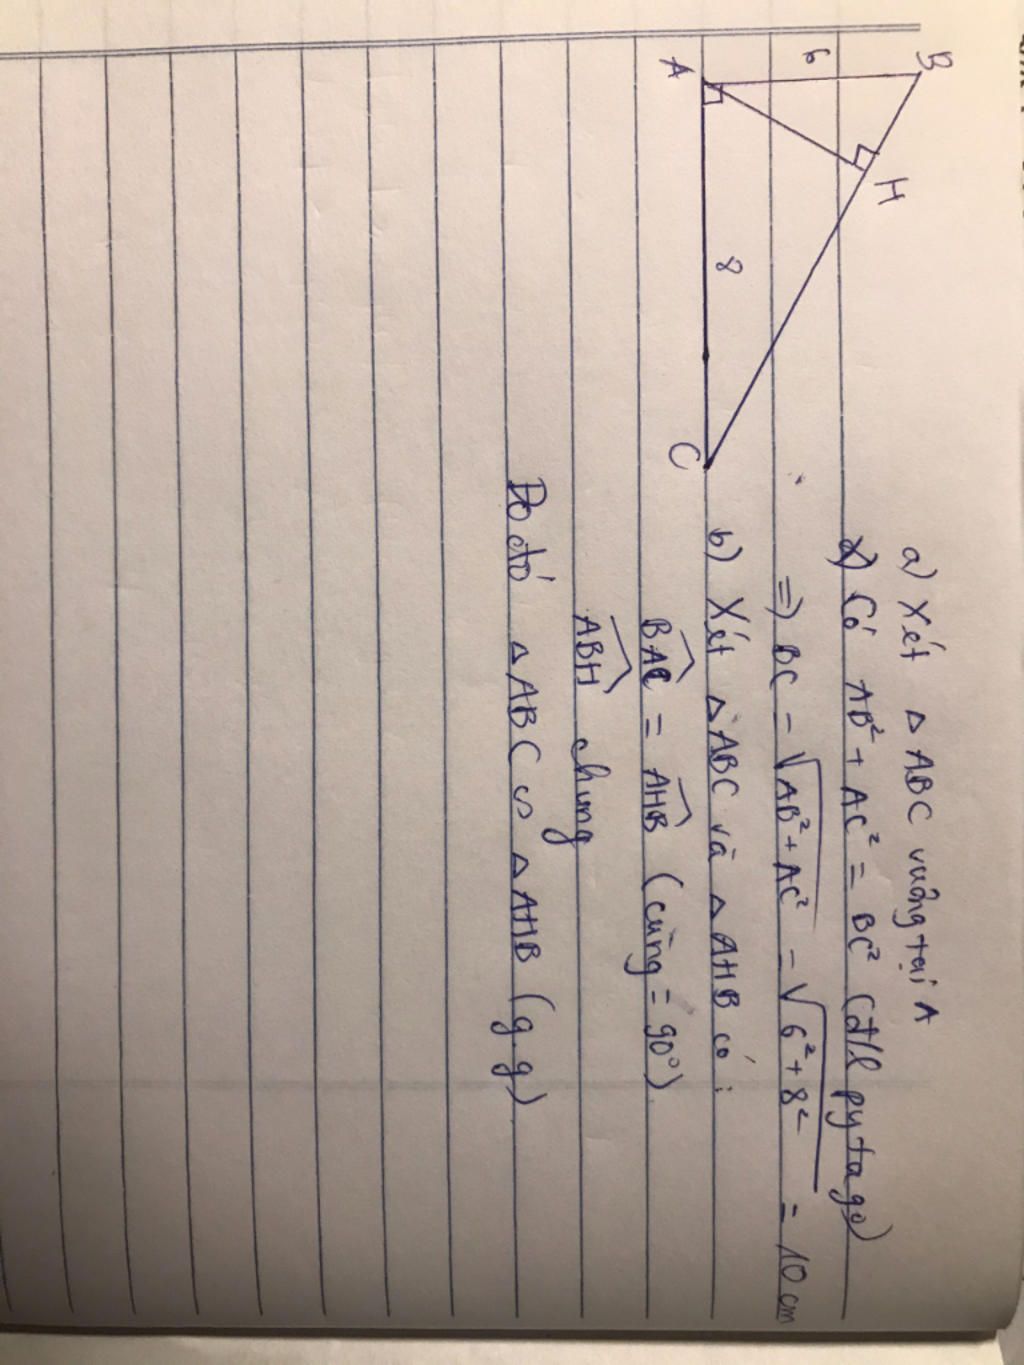 B
6
H
A
8
C
a) Xét △ ABC vuông tại A
Có AB² + AC² = BC² (đ/l pytago)
=> BC = √AB² + AC² = √6² + 8² = 10 cm
b) Xét △ ABC và △ AHB có :
BAC = AHB (cùng = 90°)
ABH chung
Do đó △ ABC ∽ △ AHB (g.g)